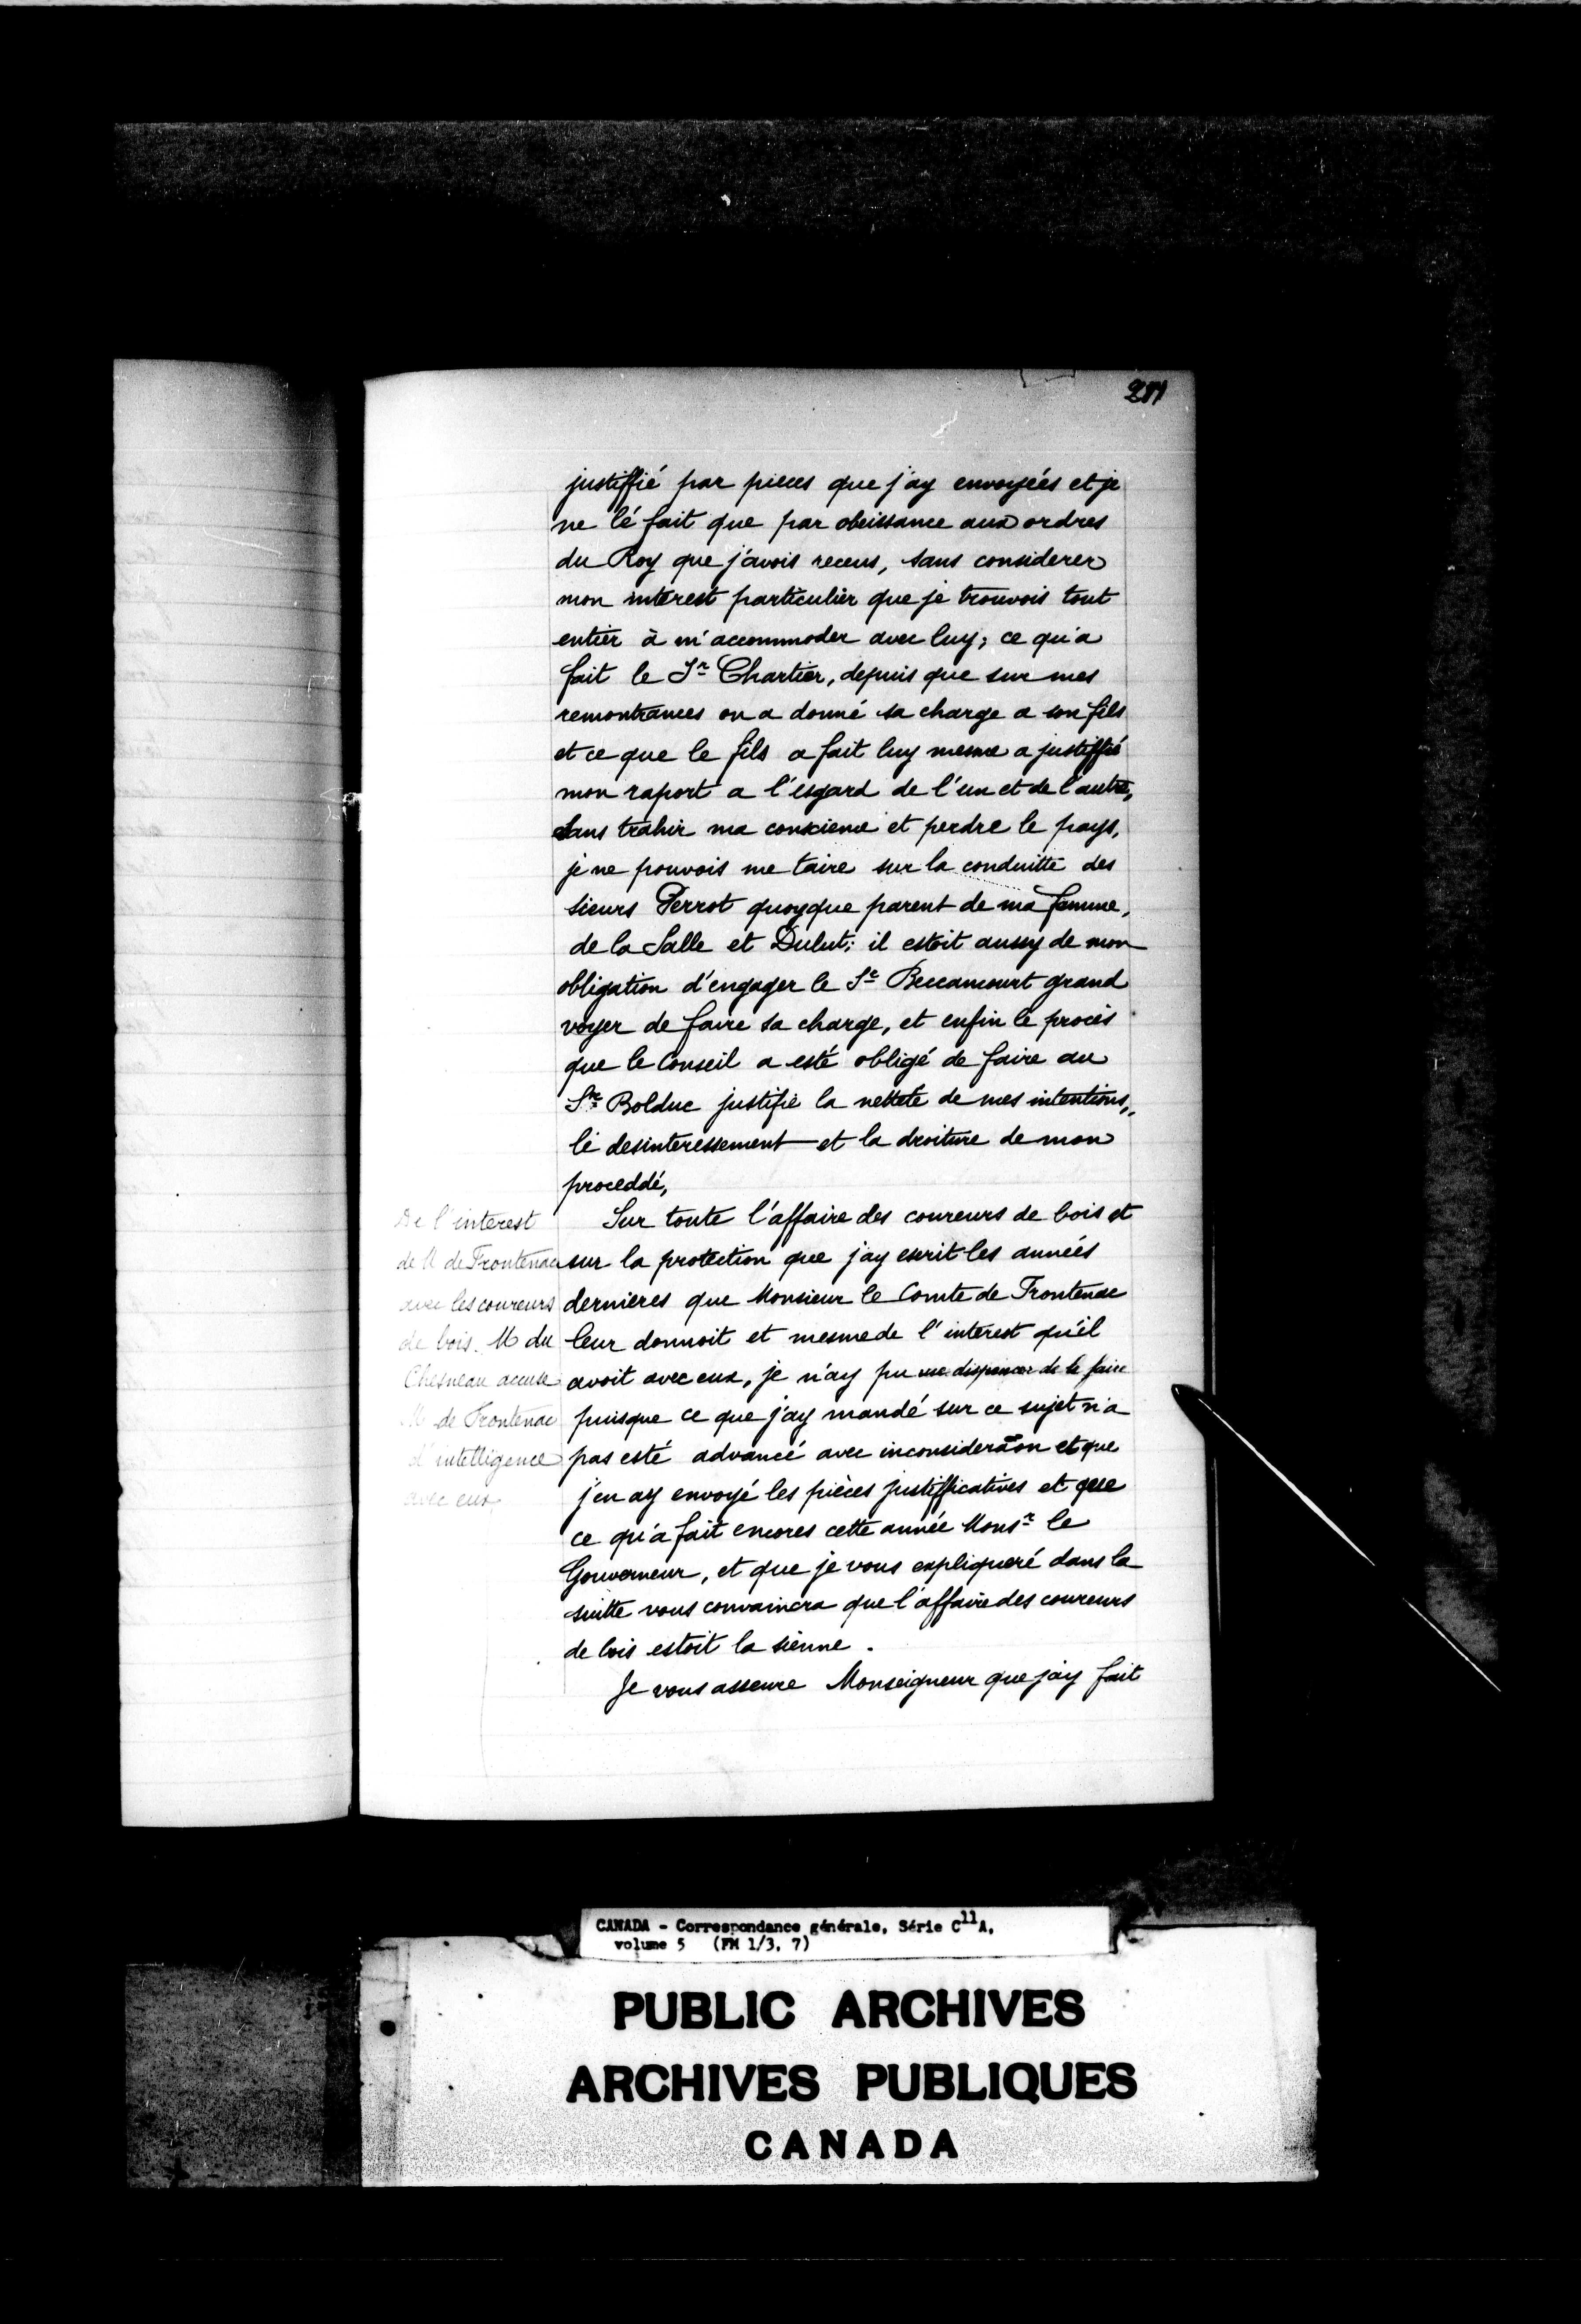 justiffié par pieces que j'ay envoyéés et je
ne lé fait que par obeissance aux ordres
du Roy que j'avois receus, sans considerer
mon interest particulier que je trouvois tout
entier à m'accommoder avec luy; ce qu'a
fait le Sr Chartier, depuis que sur mes
remontrances on a donné sa charge a son fils
et ce que le fils a fait luy mesme a justiffié
mon raport a l'esgard de l'un et de l'autre,
sans trahir ma conscience et perdre le pays,
je ne pouvois me taire sur la conduitte des
sieurs Perrot quoyque parent de ma femme,
de la Salle et Dulut; il estoit aussy de mon
obligation d'engager le Sr Beccancourt grand
voyer de faire sa charge, et enfin le procès
que le Conseil a esté obligé de faire au
Sr Bolduc justifie la netteté de mes intentions,
le desinteressement et la droiture de mon
proceddé,
Sur toute l'affaire des coureurs de bois et
sur la protection que j'ay escrit les années
dernieres que Monsieur le Comte de Frontenac
leur donnoit et mesme de l'interest qu'il
avoit avec eux, je n'ay pu me dispencer de le faire
puisque ce que j'ay mandé sur ce sujet n'a
pas esté advancé avec inconsideraon et que
j'en ay envoyé les pièces justifficatives et que
ce qu'a fait encores cette année Monsr le
Gouverneur, et que je vous expliqueré dans la
suitte vous convaincra que l'affaire des coureurs
de bois estoit la sienne.
Je vous asseure Monseigneur que j'ay fait
De l'interest
de M de Frontenac
avec les coureurs
de bois. M du
Chesneau accuse
M de Frontenac
d'intelligence
avec eux
CANADA - Correspondance générale, Série C11A,
volume 5 (FM 1/3, 7)
PUBLIC ARCHIVES
ARCHIVES PUBLIQUES
CANADA